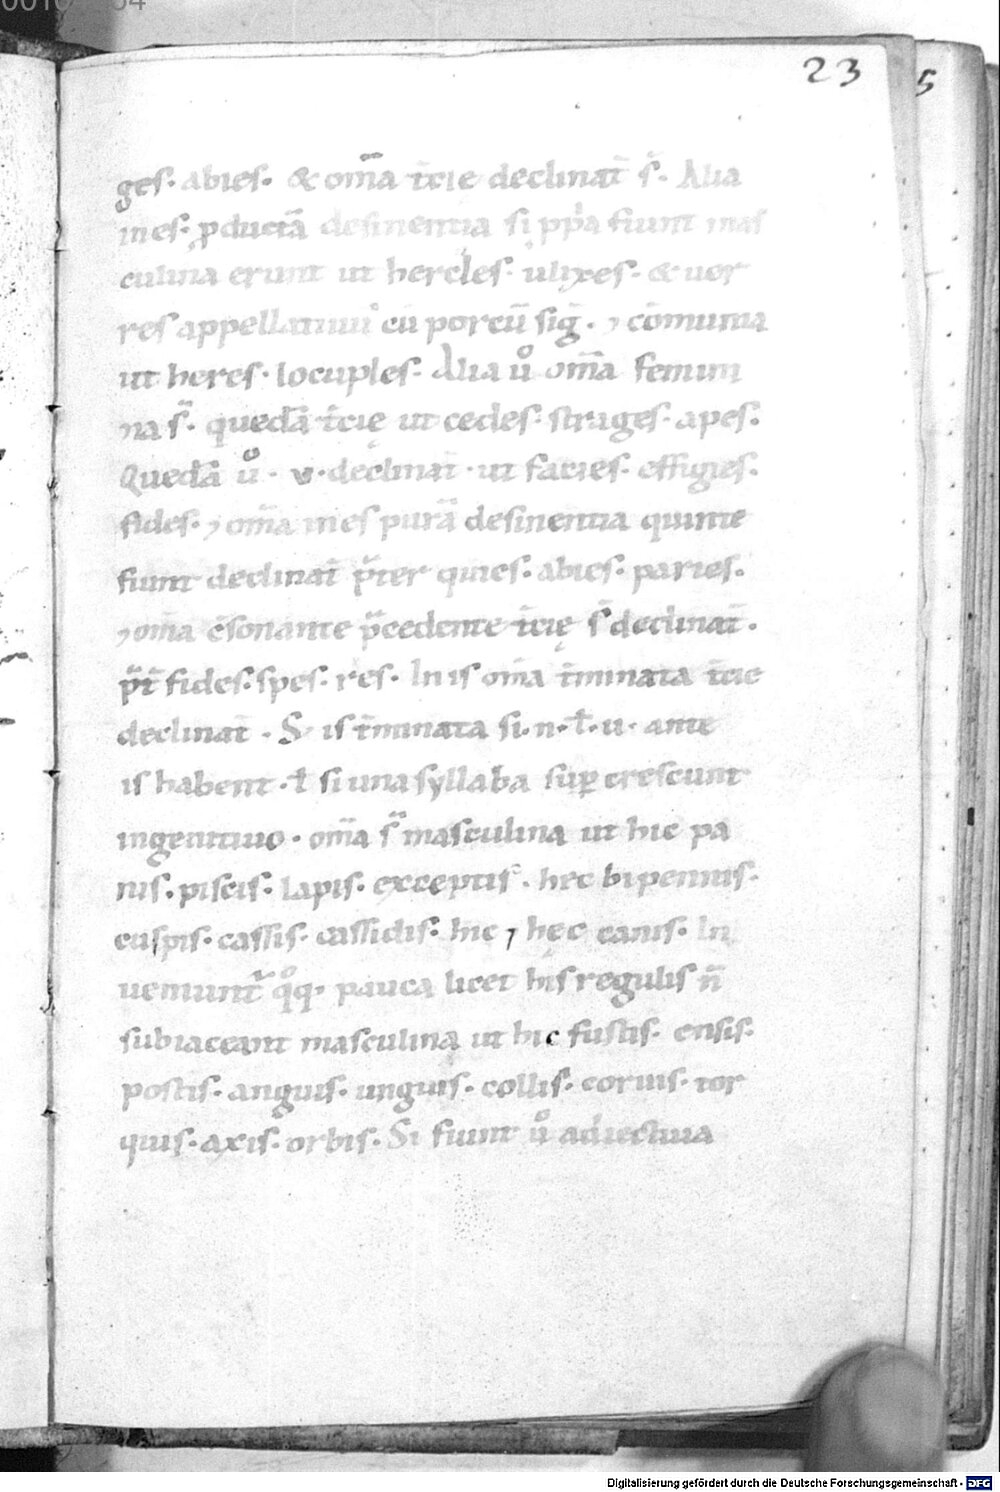 23
5
ges. abies. & om̄a t̄cie declinat̄ s̄. Alia
in es. ꝓductā desinentia si ppͥa fiunt mas
culina erunt ut hercles. ulixes. & uor
res appellatiuū cū porcū siḡ. ⁊ cōmunia
ut heres. locuples. Alia uͦ om̄a femini
na s̄. quedā t̄cię ut cedes. strages. apes.
Quedā uͦ. v. declinat̄. ut facies. effigies.
fides. ⁊ om̄a in es purā desinentia quinte
fiunt declinat̄ p̄ter quies. abies. paries.
⁊ om̄a c̄sonante p̄cedente t̄cię s̄ declinat̄.
p̄t̄ fides. spes. res. In is om̄a t̄minata t̄cie
declinat̄. S; is t̄minata si. n. ł. u. ante
is habent. ł si una syllaba suꝑ crescunt
in genitiuo. om̄a s̄ masculina ut hic pa
nis. piscis. lapis. exceptis. hec bipennis.
cuspis. cassis. cassidis. hic ⁊ hec canis. In
ueniunt̄ qͦq. pauca licet his regulis n̄
subiaceant masculina ut hic fustis. ensis.
postis. anguis. unguis. collis. coruis. tor
quis. axis. orbis. Si fiunt uͦ adiectiua
Digitalisierung gefördert durch die Deutsche Forschungsgemeinschaft - DFG